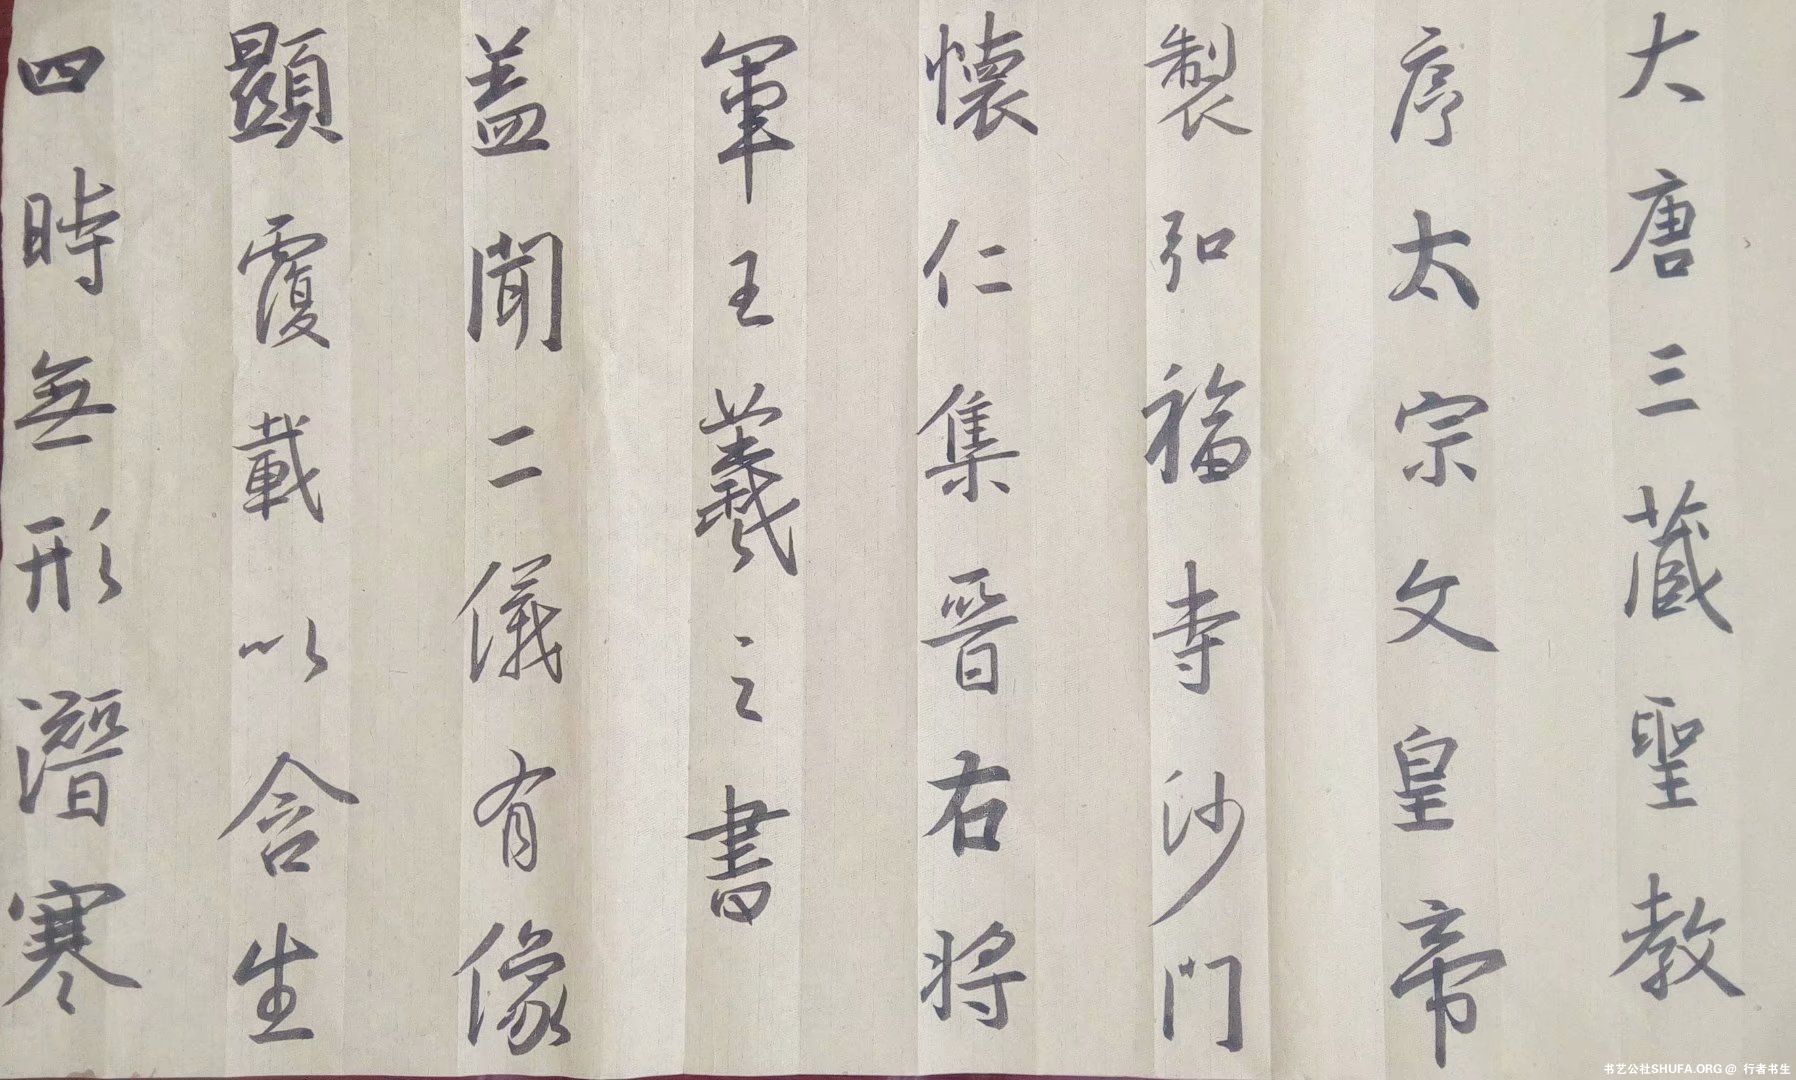 大唐三藏聖教
序太宗文皇帝
製弘福寺沙門
懷仁集晉右将
軍王羲之書
盖聞二儀有像
顯覆載以含生
四時無形潛寒
书艺公社SHUFA.ORG @ 行者书生